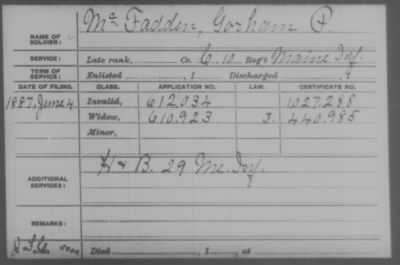 NAME OF SOLDIER: McFadden, Gorham P.
SERVICE: Late rank, Co. C, 10 Reg't Maine Inf.
TERM OF SERVICE: Enlisted , 1 Discharged , 1
DATE OF FILING. CLASS. APPLICATION NO. LAW. CERTIFICATE NO.
1887, June 4. Invalid, 612,034 1027.288
Widow, 610,923 J. 440.985
Minor,
ADDITIONAL SERVICES: B. 29 Me. Inf.
REMARKS:
Died , 1 , at